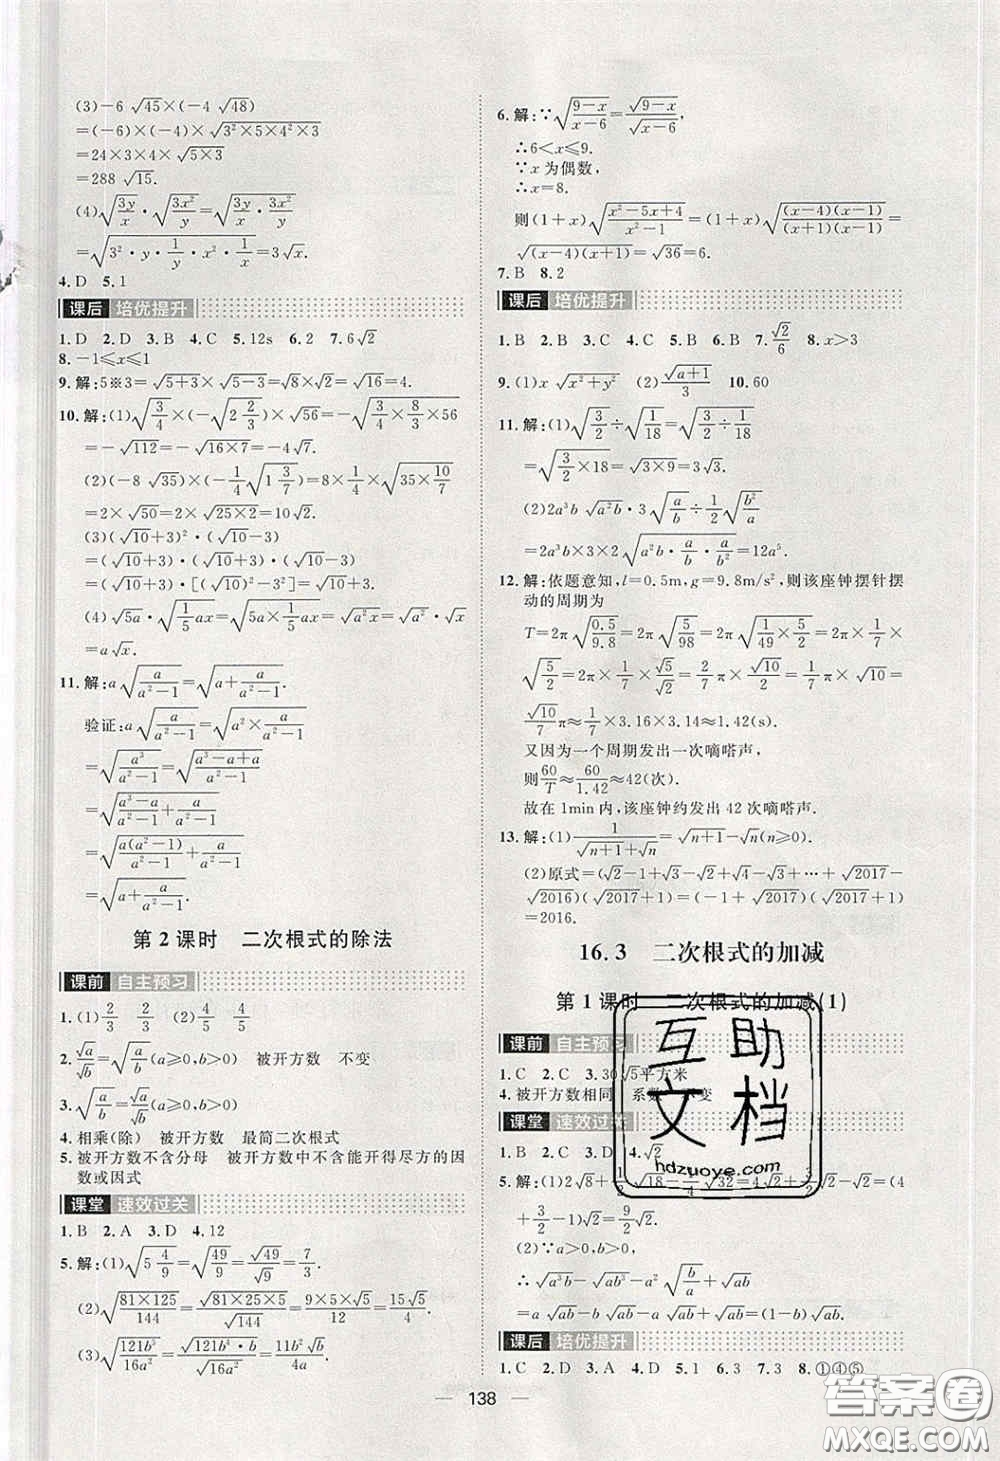 (3)-6 √45×(-4 √48)
=(-6)×(-4)×√(3²×5×4²×3)
=24×3×4×√(5×3)
=288 √15.
(4)√(3y/x)·√(3x²/y)=√(3y/x·3x²/y)
=√(3²·y·1/y·1/x·x²)=3√x.
4.D 5.1
课后 培优提升
1.D 2.D 3.B 4.C 5.12s 6.2 7.6√2
8.-1⩽x⩽1
9.解:5※3=√(5+3)×√(5-3)=√8×√2=√16=4.
10.解:(1)√(3/4)×(-√(2 2/3))×√56=-√(3/4×8/3×56)
=-√112=-√(16×7)=-4√7.
(2)(-8 √35)×(-1/4√(1 3/7))=8×1/4×√(35×10/7)
=2×√50=2×√(25×2)=10√2.
(3)(√10+3)²·(√10-3)
=(√10+3)·(√10+3)·(√10-3)
=(√10+3)·[(√10)²-3²]=√10+3.
(4)√5a·√(1/5ax)=√(5a×1/5ax)=√(a²x)=√a²·√x
=a√x.
11.解:a√(a/(a²-1))=√(a+a/(a²-1)).
验证:a√(a/(a²-1))=√(a²×a/(a²-1))
=√(a³/(a²-1))=√((a³-a+a)/(a²-1))
=√((a³-a)/(a²-1)+a/(a²-1))
=√(a(a²-1)/(a²-1)+a/(a²-1))
=√(a+a/(a²-1)).
第2课时 二次根式的除法
课前 自主预习
1.(1)2/3 2/3 (2)4/5 4/5
2.√a/√b=√(a/b)(a⩾0,b>0) 被开方数 不变
3.√(a/b)=√a/√b(a⩾0,b>0)
4.相乘(除) 被开方数 最简二次根式
5.被开方数不含分母 被开方数中不含能开得尽方的因
数或因式
课堂 速效过关
1.B 2.A 3.D 4.12
5.解:(1)√(5 4/9)=√(49/9)=√49/√9=7/3.
(2)√(81×125/144)=√(81×25×5)/√144=9×5×√5/12=15√5/4.
(3)√(121b³/16a²)=√(121b²·b)/√16a²=11b√b/4a.
6.解:∵√((9-x)/(x-6))=√(9-x)/√(x-6),
∴6<x⩽9.
∵x为偶数,
∴x=8.
则(1+x)√((x²-5x+4)/(x²-1))=(1+x)√((x-4)(x-1)/(x+1)(x-1))=
√((x-4)(x+1))=√36=6.
7.B 8.2
课后 培优提升
1.B 2.B 3.C 4.C 5.A 6.B 7.√2/6 8.x>3
9.(1)x √(x²+y²) (2)√(a+1)/3 10.60
11.解:(1)√(3/2)÷√(1/18)=√(3/2÷1/18)
=√(3/2×18)=√(3×9)=3√3.
(2)2a³b √(a²b)·3√(a/b)÷1/2√(b²/a)
=2a³b×3×2√(a²b·a/b·a/b²)=12a⁵.
12.解:依题意知,l=0.5m,g=9.8m/s²,则该座钟摆针摆
动的周期为
T=2π√(0.5/9.8)=2π√(5/98)=2π√(1/49×5/2)=2π×1/7×
√(5/2)=2π×1/7×√5/√2=2π×1/7×√10/2=π×1/7×
√10/7π≈1/7×3.16×3.14≈1.42(s).
又因为一个周期发出一次嘀嗒声,
则60/T≈60/1.42≈42(次).
故在1min内,该座钟约发出42次嘀嗒声.
13.解:(1)1/(√(n+1)+√n)=√(n+1)-√n(n⩾0).
(2)原式=(√2-1+√3-√2+√4-√3+…+√2017-
√2016)(√2017+1)=(√2017-1)(√2017+1)
=2016.
16.3 二次根式的加减
第1课时 二次根式的加减(1)
课前 自主预习
1.C 2.C 3.30√5平方米
4.被开方数相同 系数 不变
课堂 速效过关
1.B 2.C 3.D 4.√2
5.√18 √32=4√2 √2-√2=(4
+3/2-1)√2=9/2√2.
(2)∵a>0,b>0,
∴√(a³b)-√(ab³)-a√(b/a)+√(ab)
=a√ab-b√ab-√ab+√ab
=a√ab-b√ab.
课后 培优提升
1.C 2.D 3.A 4.D 5.1 6.3 7.3 8.①④⑤
138
互助
文档
hdzuoye.com
答案圈
MXQE.COM